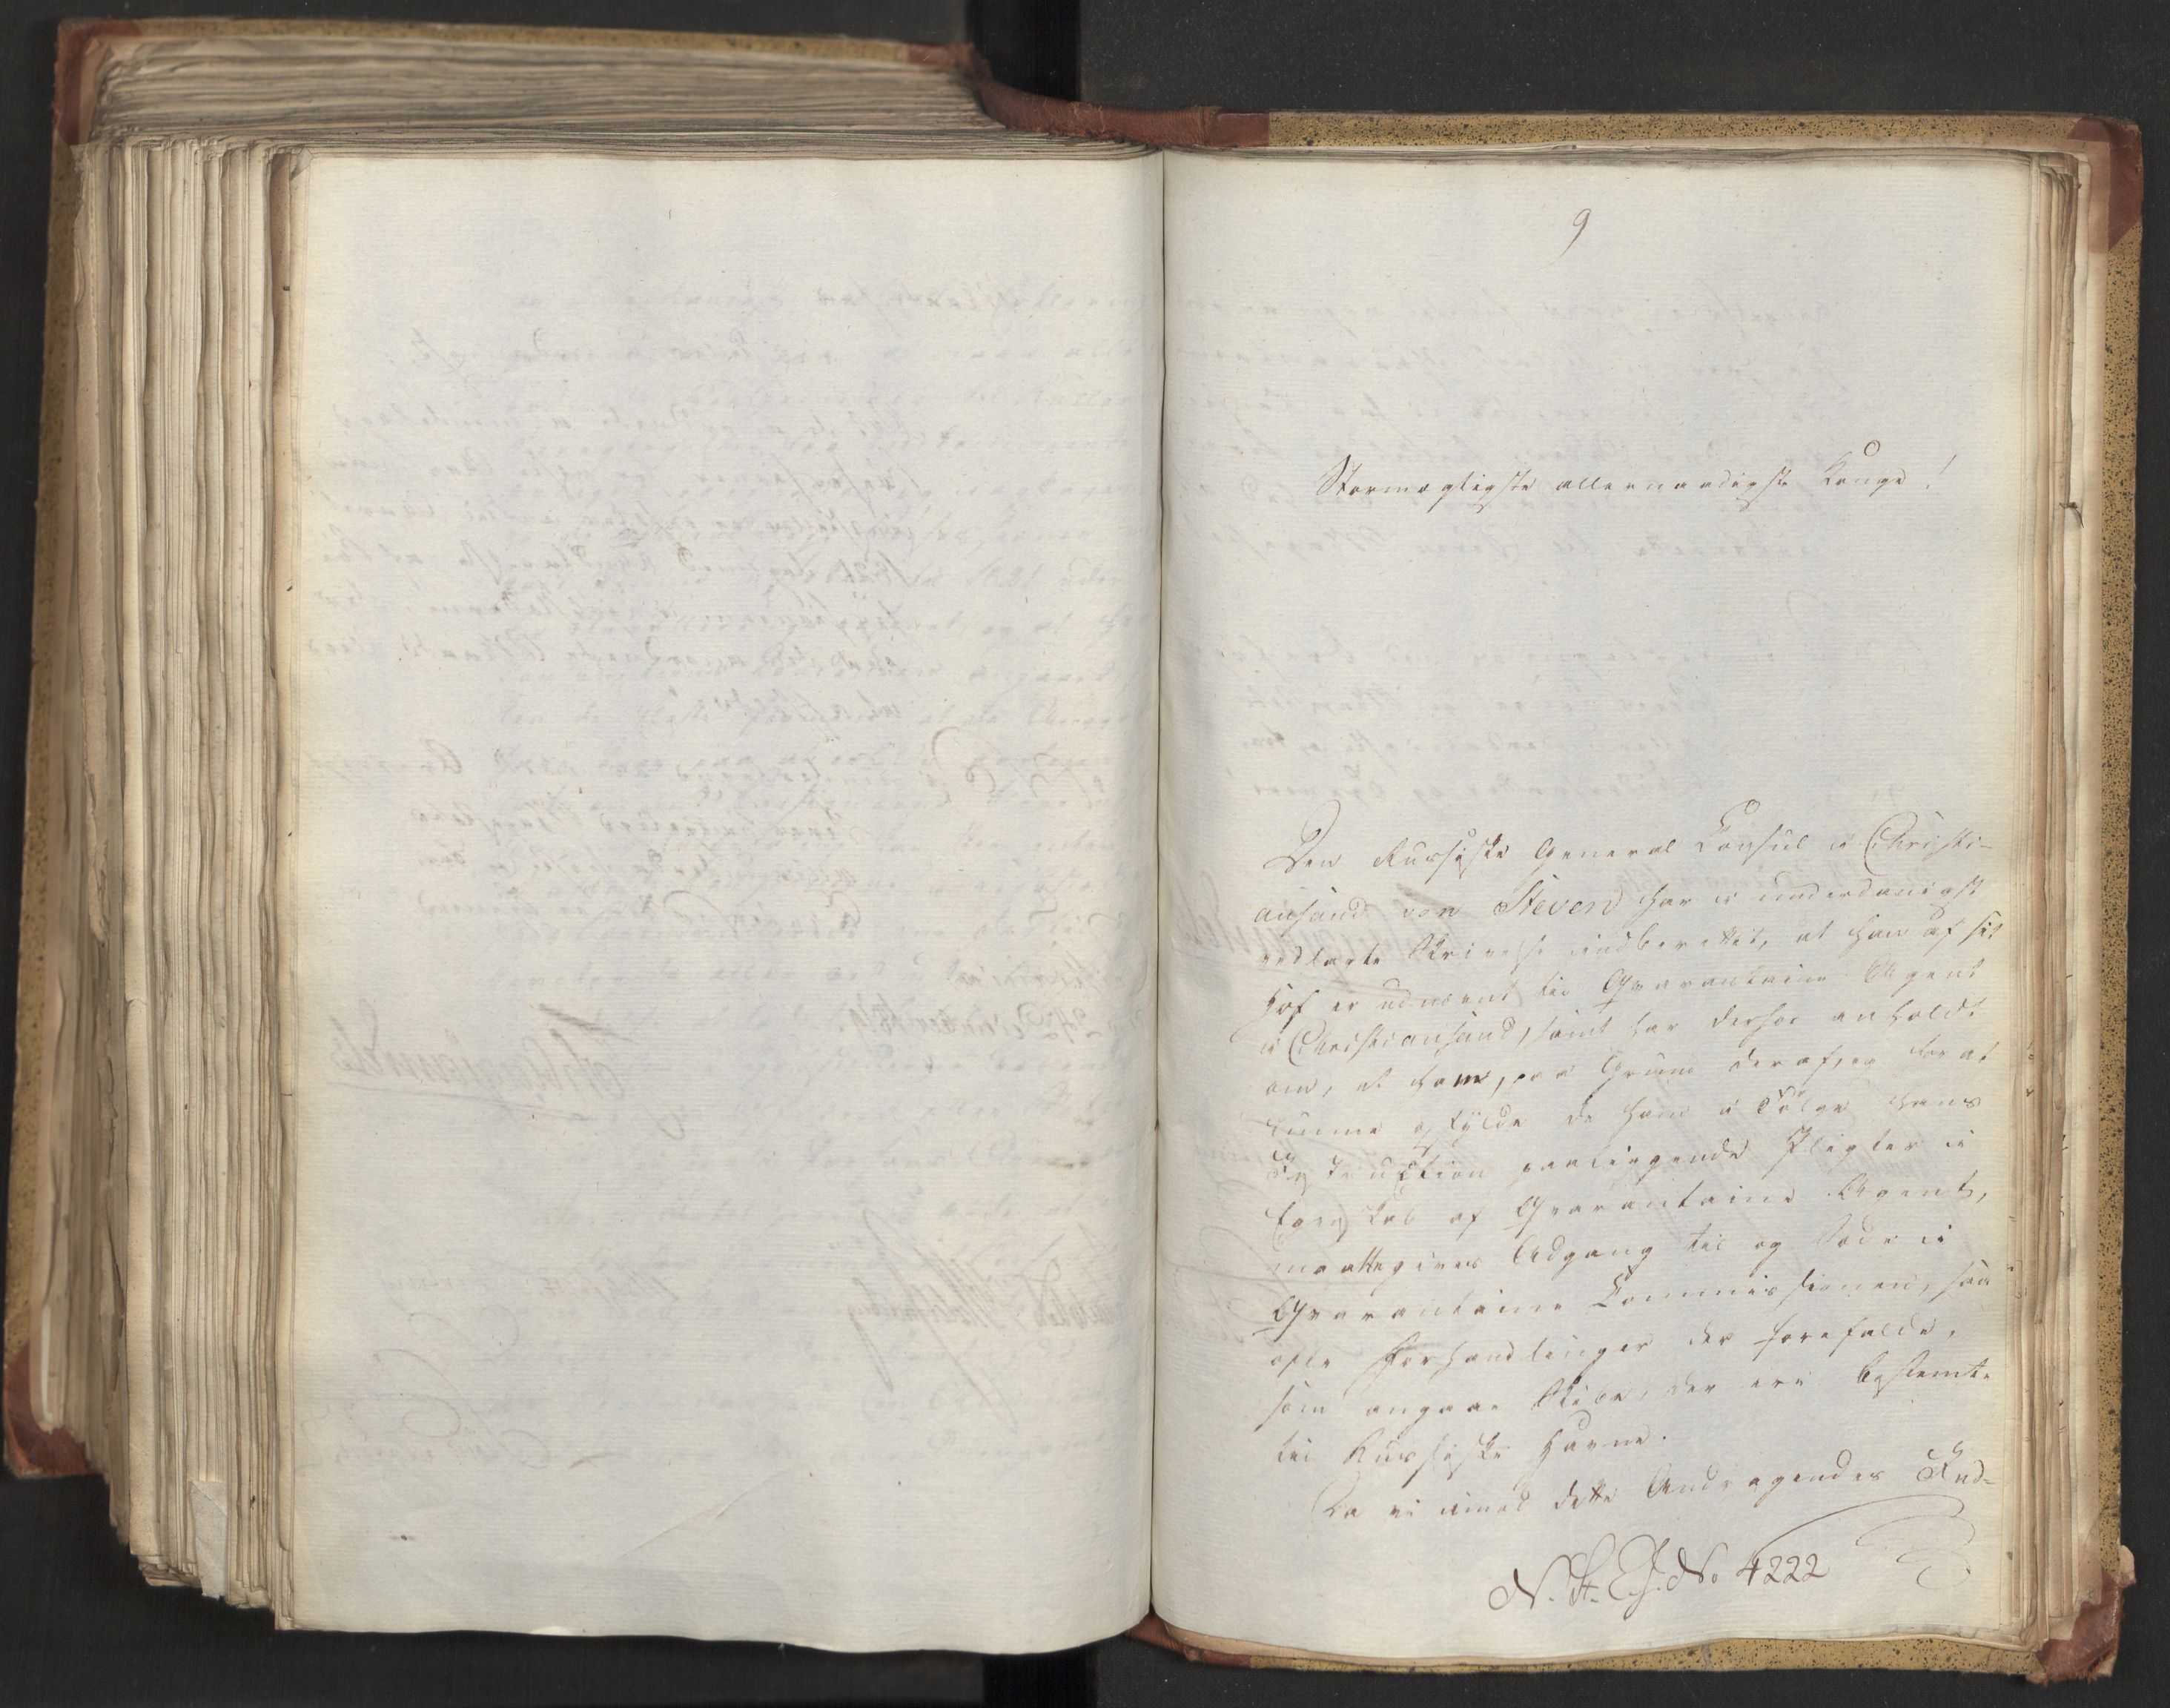 9
Stormægtigste allernaadigste Konge!
Den Russiske General Consul i Christi-
ansand von Steven har i underdanigst
vedlagte Skrivelse indberettet, at han af sit
Hof er udnævnt til Qvarantaine Agent
i Christiansand, samt har derhos anholdt
om, at ham, paa Grund deraf, og for at
kunne opfylde de ham i Følge hans
Instruction paaliggende Pligter i
Egenskab af Qvarantaine Agent,
maatte gives Adgang til og Sæde i
Qvarantaine Commissionen, saa
ofte Forhandlinger der forefalde,
som angaae Skibe, der ere bestemte
til Russiske Havne.
Da vi imod dette Andragendes Ind-
N. St. E. J. No 4222